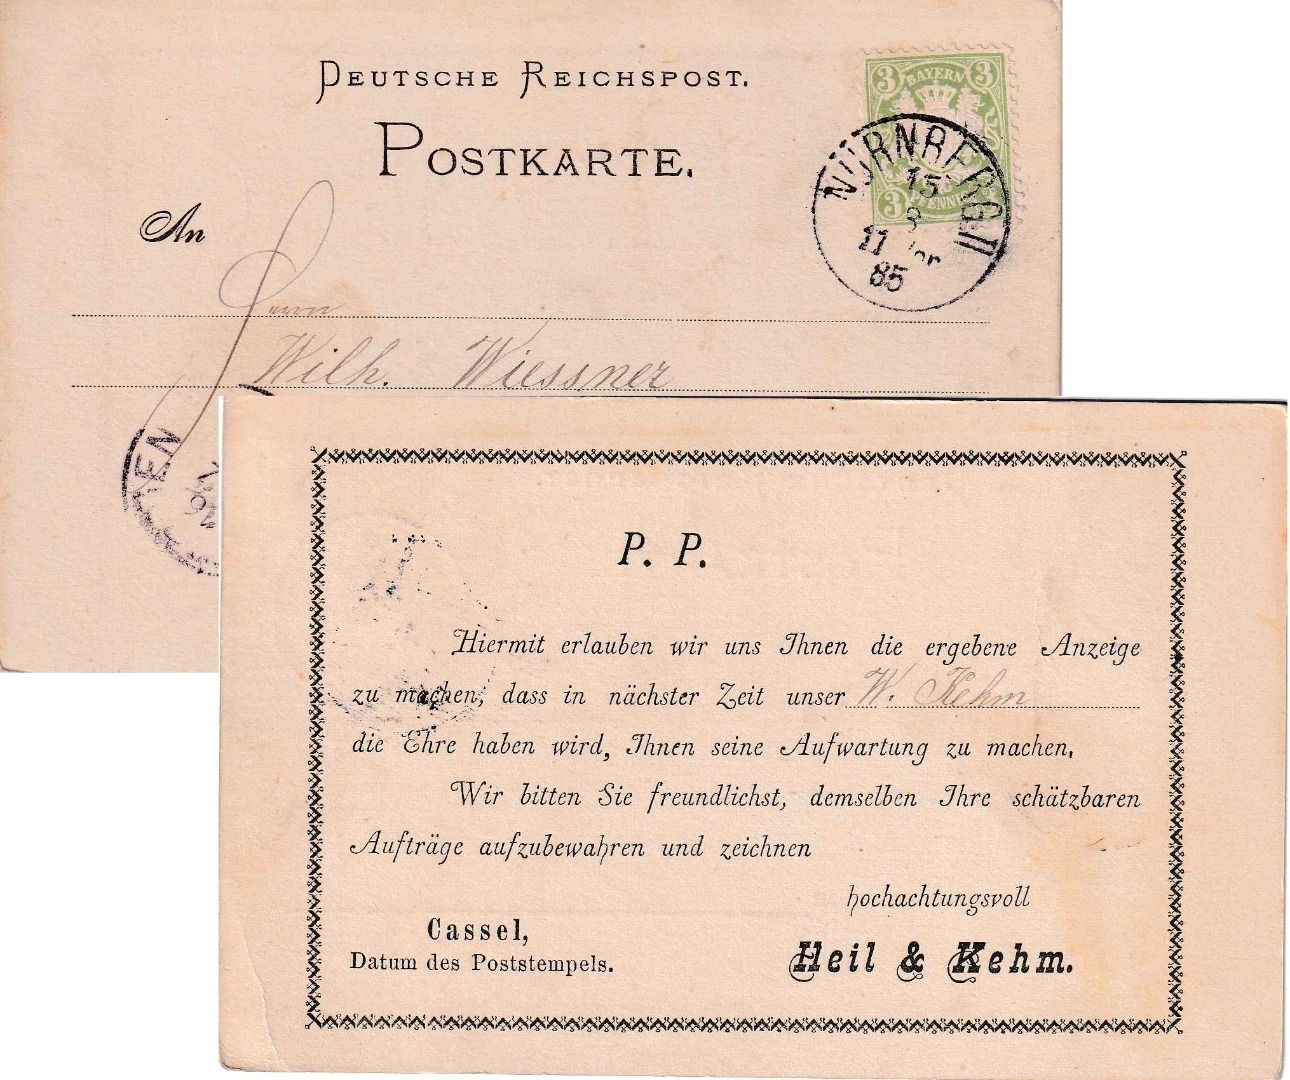 DEUTSCHE REICHSPOST.
POSTKARTE.
3 BAYERN 3
3 PFENNIG
NÜRNBERG II
15
8
11 Vor
85
An
Herrn
Wilh. Wiessner
EN
P. P.
Hiermit erlauben wir uns Ihnen die ergebene Anzeige
zu machen, dass in nächster Zeit unser W. Kehm
die Ehre haben wird, Ihnen seine Aufwartung zu machen.
Wir bitten Sie freundlichst, demselben Ihre schätzbaren
Aufträge aufzubewahren und zeichnen
hochachtungsvoll
Cassel,
Datum des Poststempels.
Heil & Kehm.